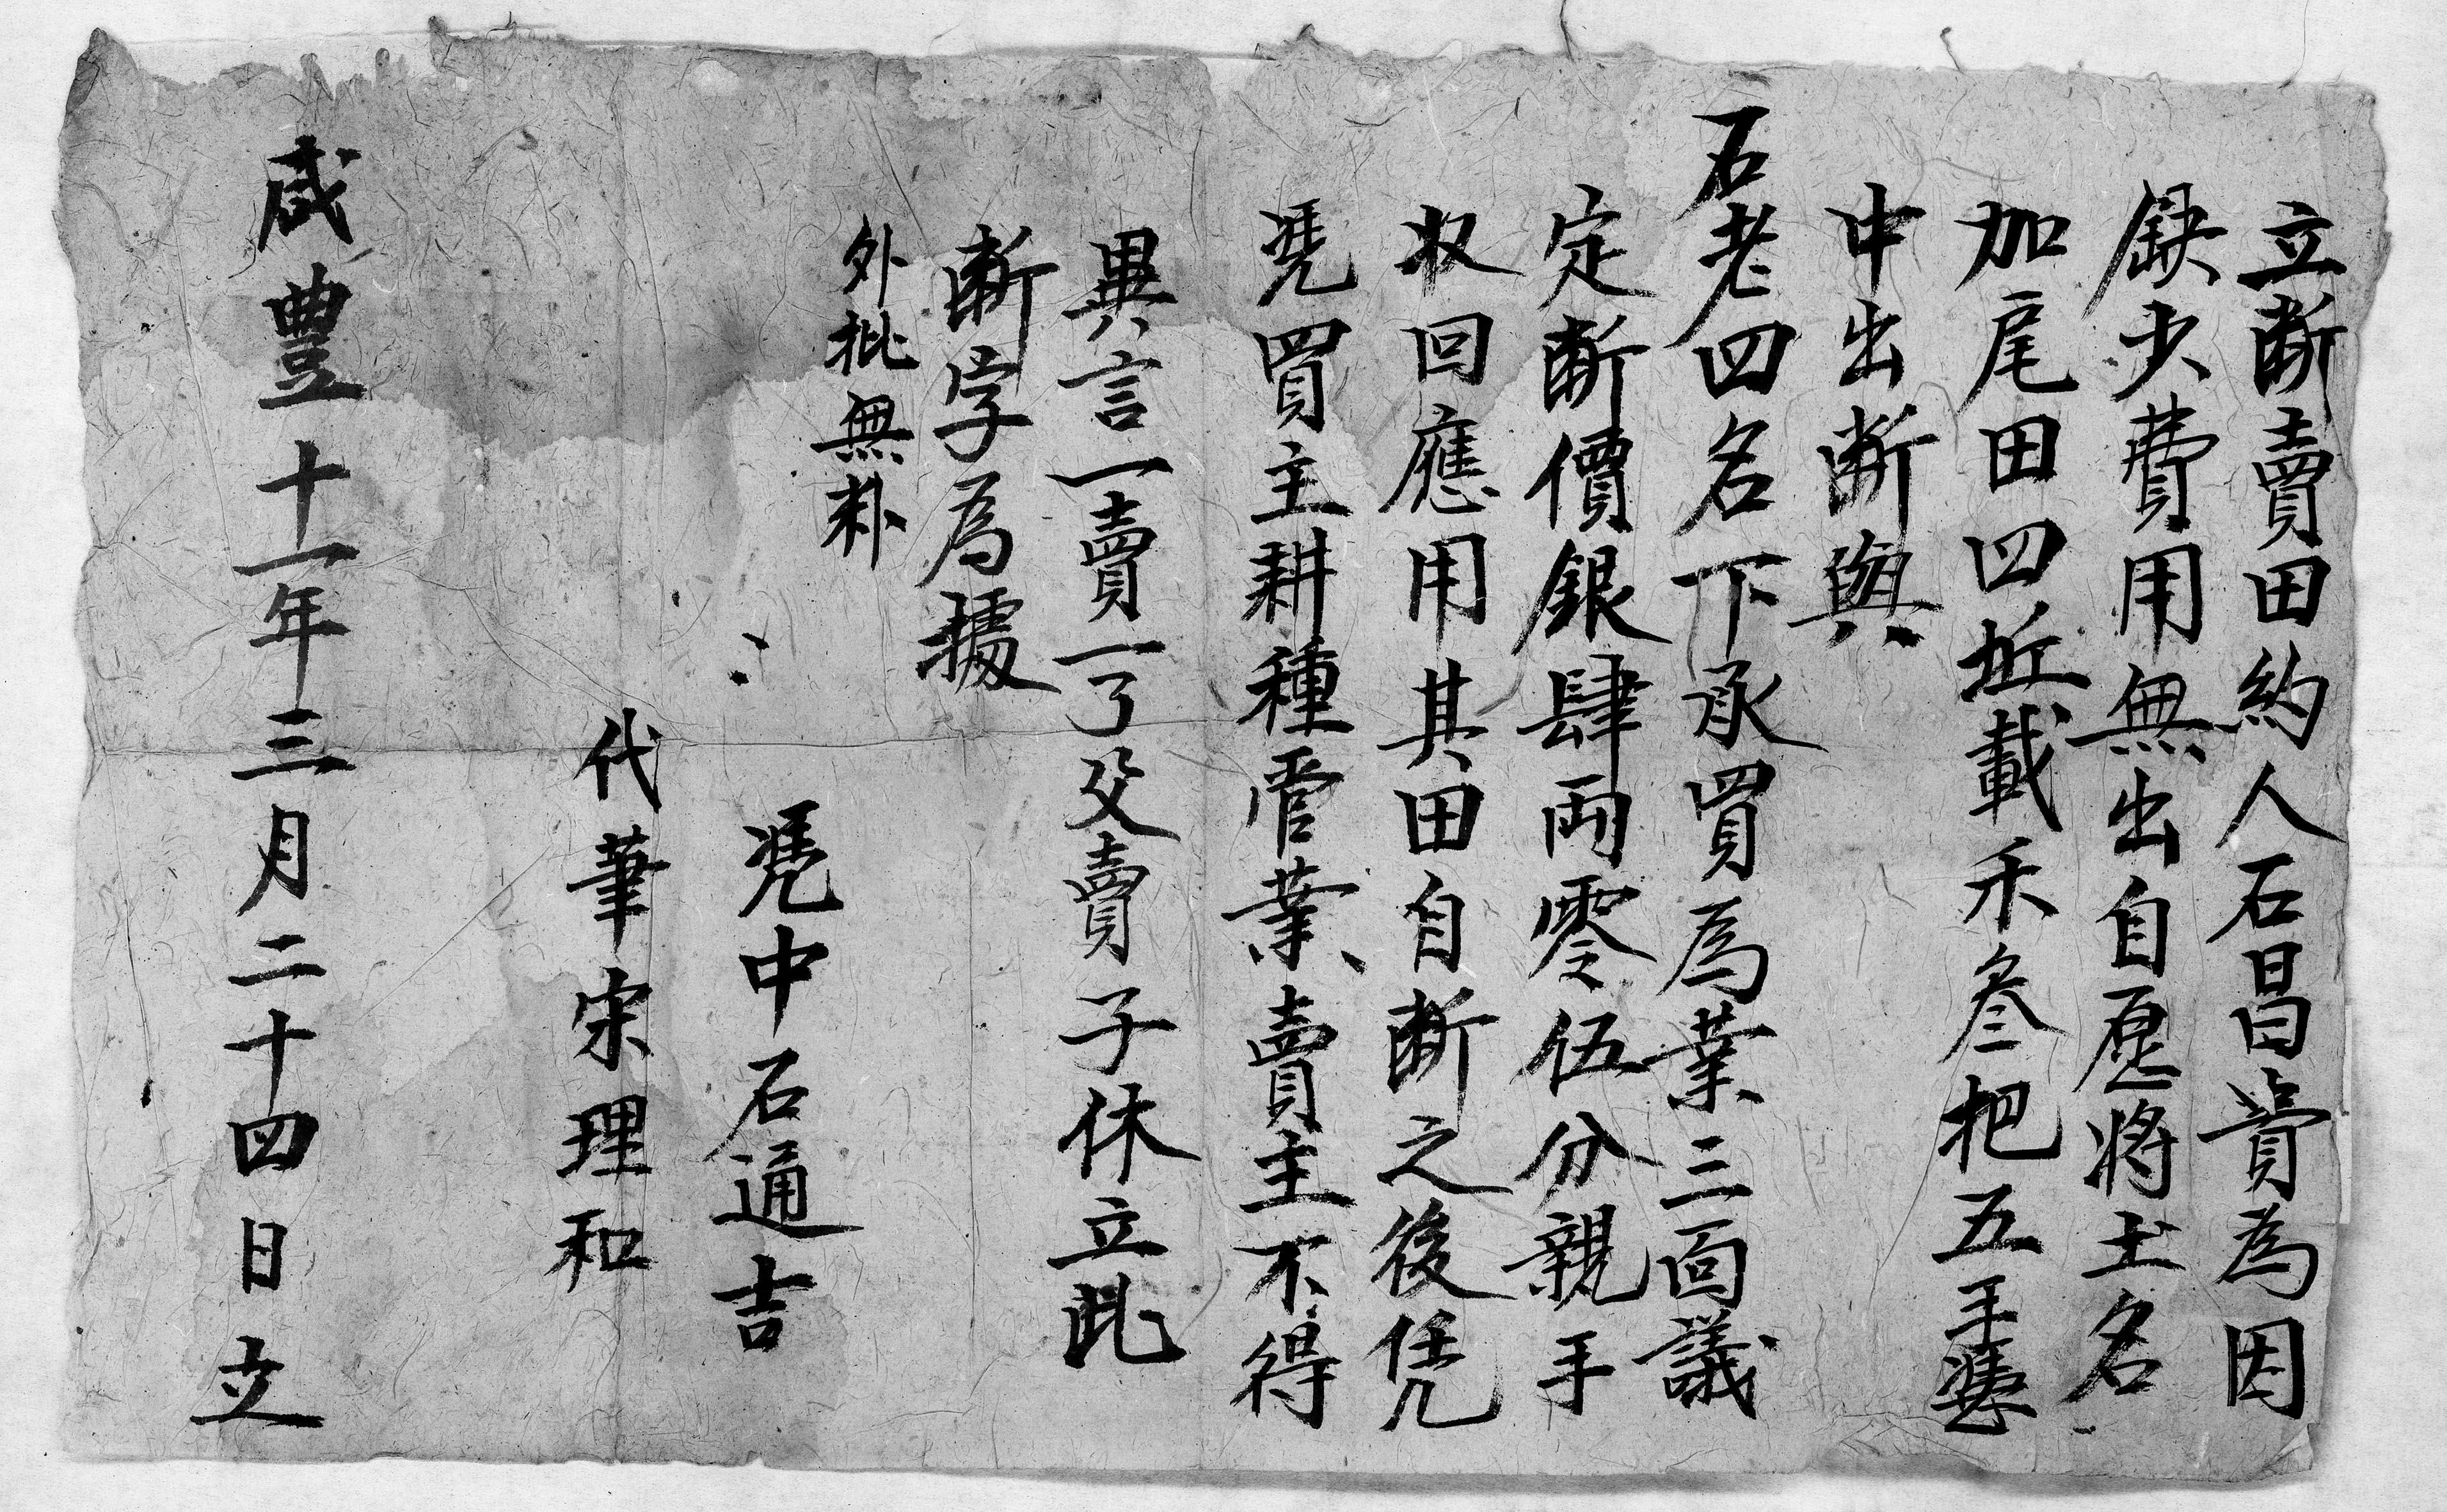 立断賣田約人石昌貴為因
缺少費用無出自愿將土名
加尾田四坵載禾叁把五手憑
中出断與
石老四名下承買為業三面議
定断價銀肆両零伍分親手
収回應用其田自断之後凭
凴買主耕種管業賣主不得
異言一賣一了父賣子休立此
断字為據
外批無補
凴中石通吉
代筆宋理和
咸豐十一年三月二十四日立